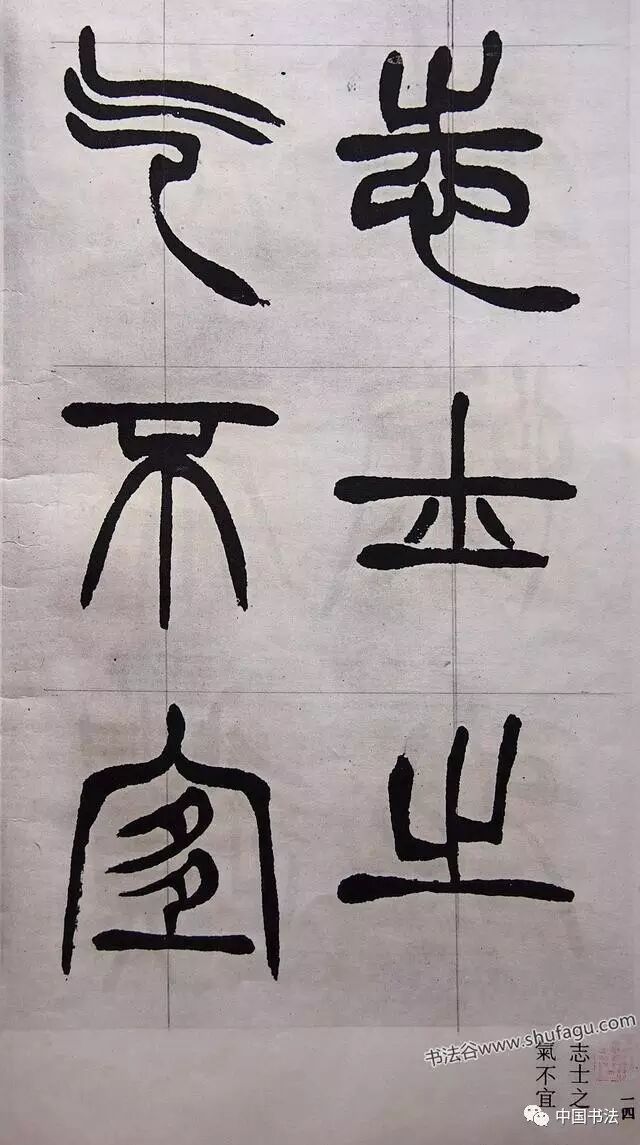 志士之
气不宜
书法谷www.shufagu.com
志士之
氣不宜
一四
中国书法